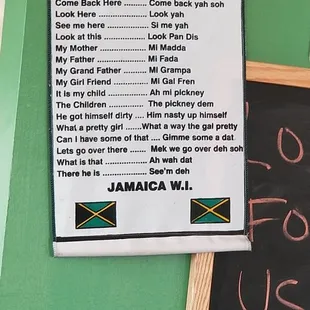 Come Back Here .......... Come back yah soh
Look Here .............. Look yah
See me here ............ Si me yah
Look at this ............ Look Pan Dis
My Mother .............. Mi Madda
My Father .............. Mi Fada
My Grand Father ........ Mi Grampa
My Girl Friend ......... Mi Gal Fren
It is my child .......... Ah mi pickney
The Children ........... The pickney dem
He got himself dirty .... Him nasty up himself
What a pretty girl ...... What a way the gal pretty
Can I have some of that .... Gimme some a dat
Lets go over there ...... Mek we go over deh soh
What is that ............ Ah wah dat
There he is ............. See'm deh
JAMAICA W.I.
LO
FO
US